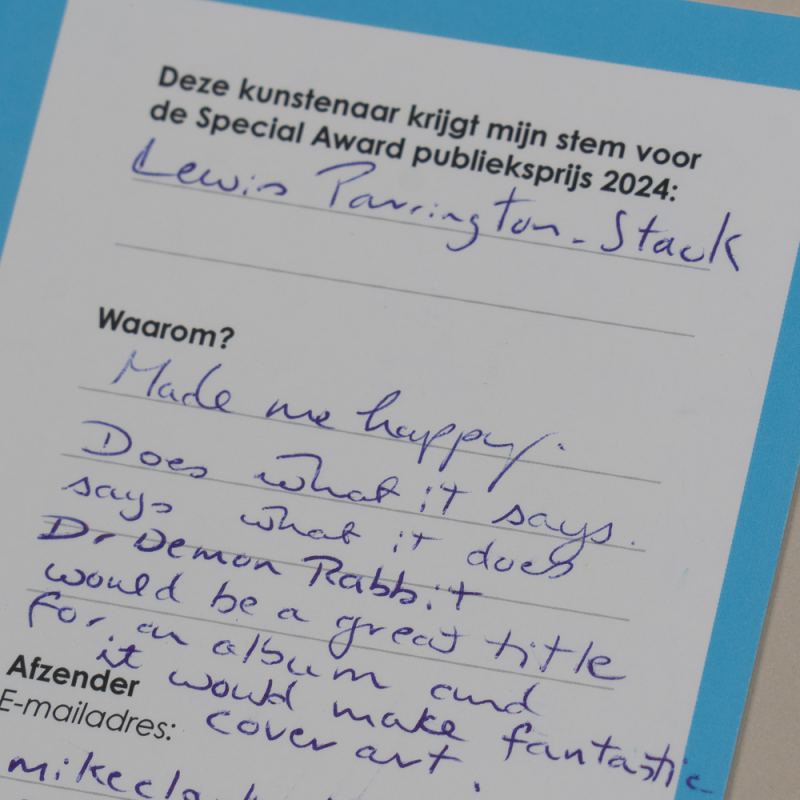 Deze kunstenaar krijgt mijn stem voor
de Special Award publieksprijs 2024:
Lewis Parrington-Stack
Waarom?
Made me happy.
Does what it says.
says what it does
Dr Demon Rabbit
would be a great title
for an album and
it would make fantastic
cover art.
Afzender
E-mailadres: